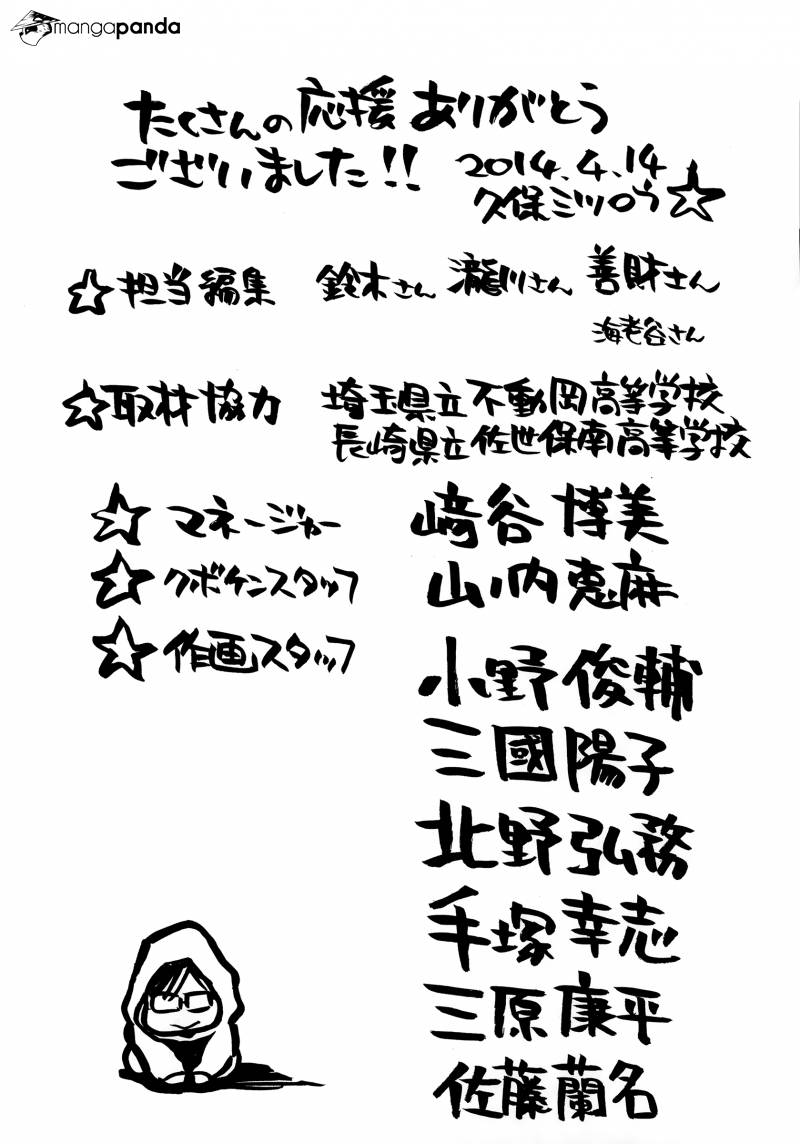 mangapanda
たくさんの応援ありがとう
ございました!! 2014.4.14
久保ミツロウ☆
☆担当編集 鈴木さん 瀧川さん 善財さん
海老谷さん
☆取材協力 埼玉県立不動岡高等学校
長崎県立佐世保南高等学校
☆マネージャー 﨑谷博美
☆クボケンスタッフ 山ノ内恵麻
☆作画スタッフ
小野俊輔
三國陽子
北野弘務
手塚幸志
三原康平
佐藤蘭名